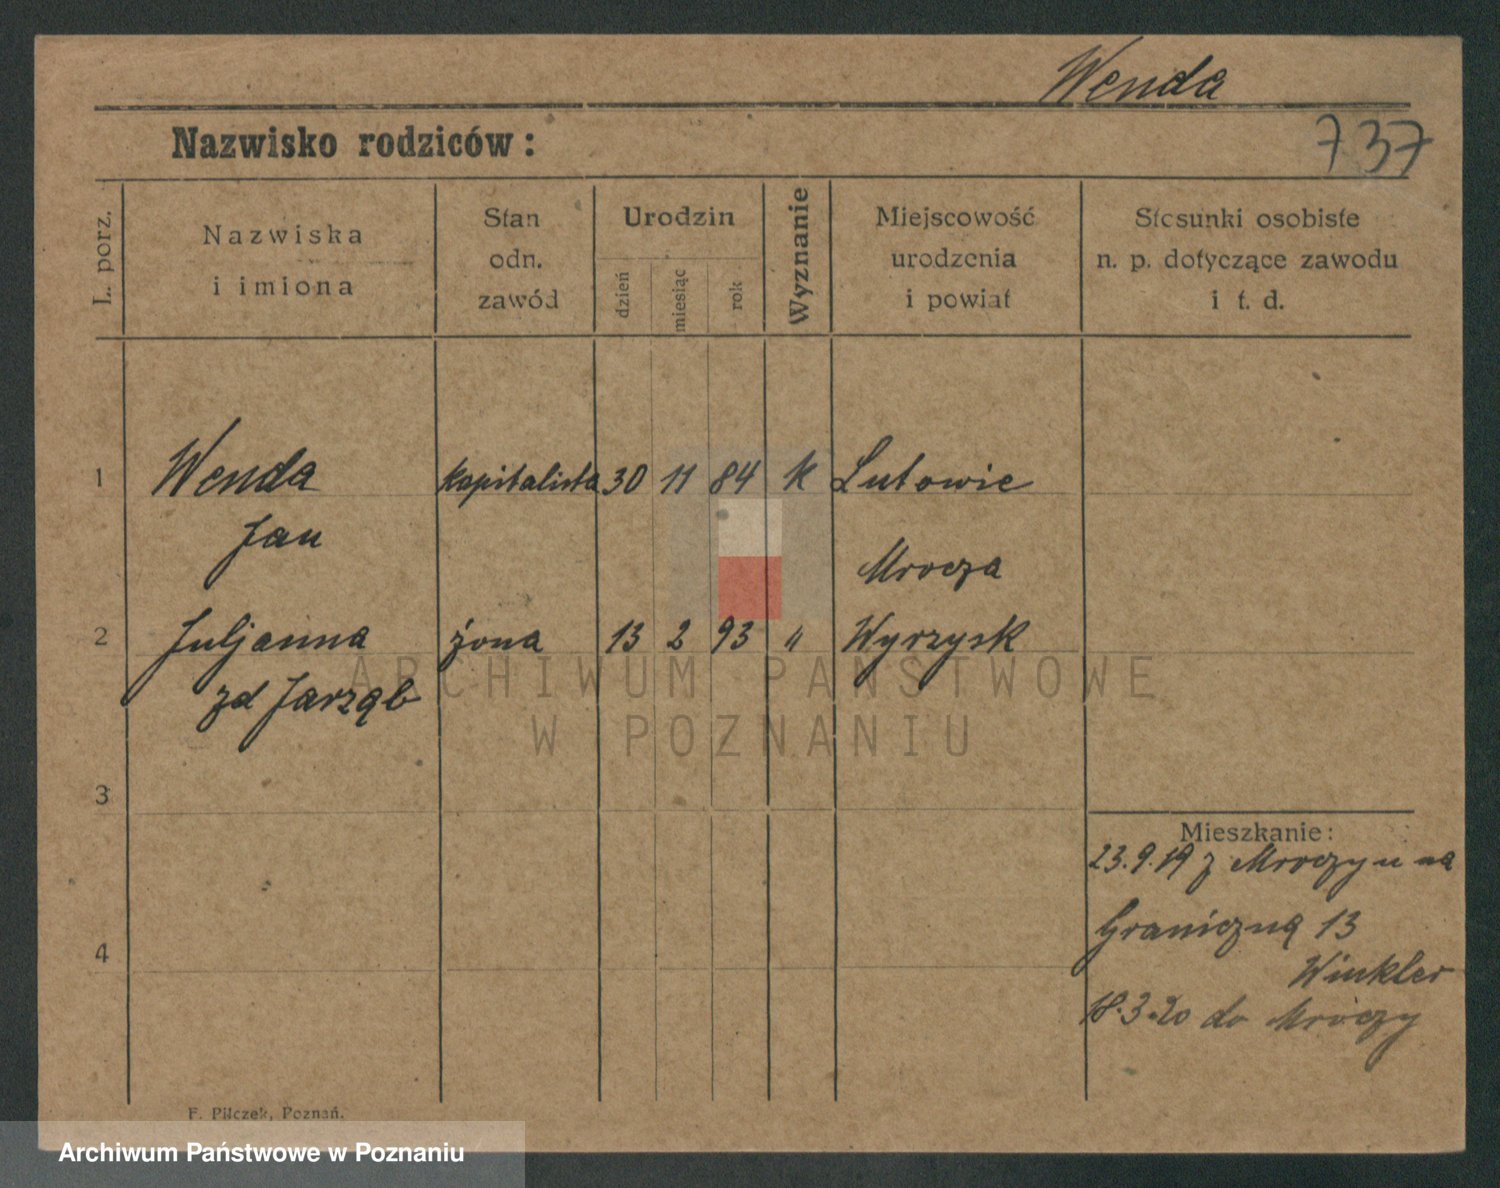 Wenda
Nazwisko rodziców:
737
L. porz.
Nazwiska
i imiona
Stan
odn.
zawód
Urodzin
dzień
miesiąc
rok
Wyznanie
Miejscowość
urodzenia
i powiat
Stosunki osobiste
n. p. dotyczące zawodu
i t. d.
1 Wenda kapitalista 30 11 84 K Lutowie
Jan
Mrocza
2 Juljanna żona 13 2 93 " Wyrzysk
zd Jarząb
3
4
Mieszkanie:
23.9.19 z Mroczy na
Graniczną 13
Winkler
18.3.20 do Mroczy
F. Pilczek, Poznań.
ARCHIWUM PAŃSTWOWE
W POZNANIU
Archiwum Państwowe w Poznaniu